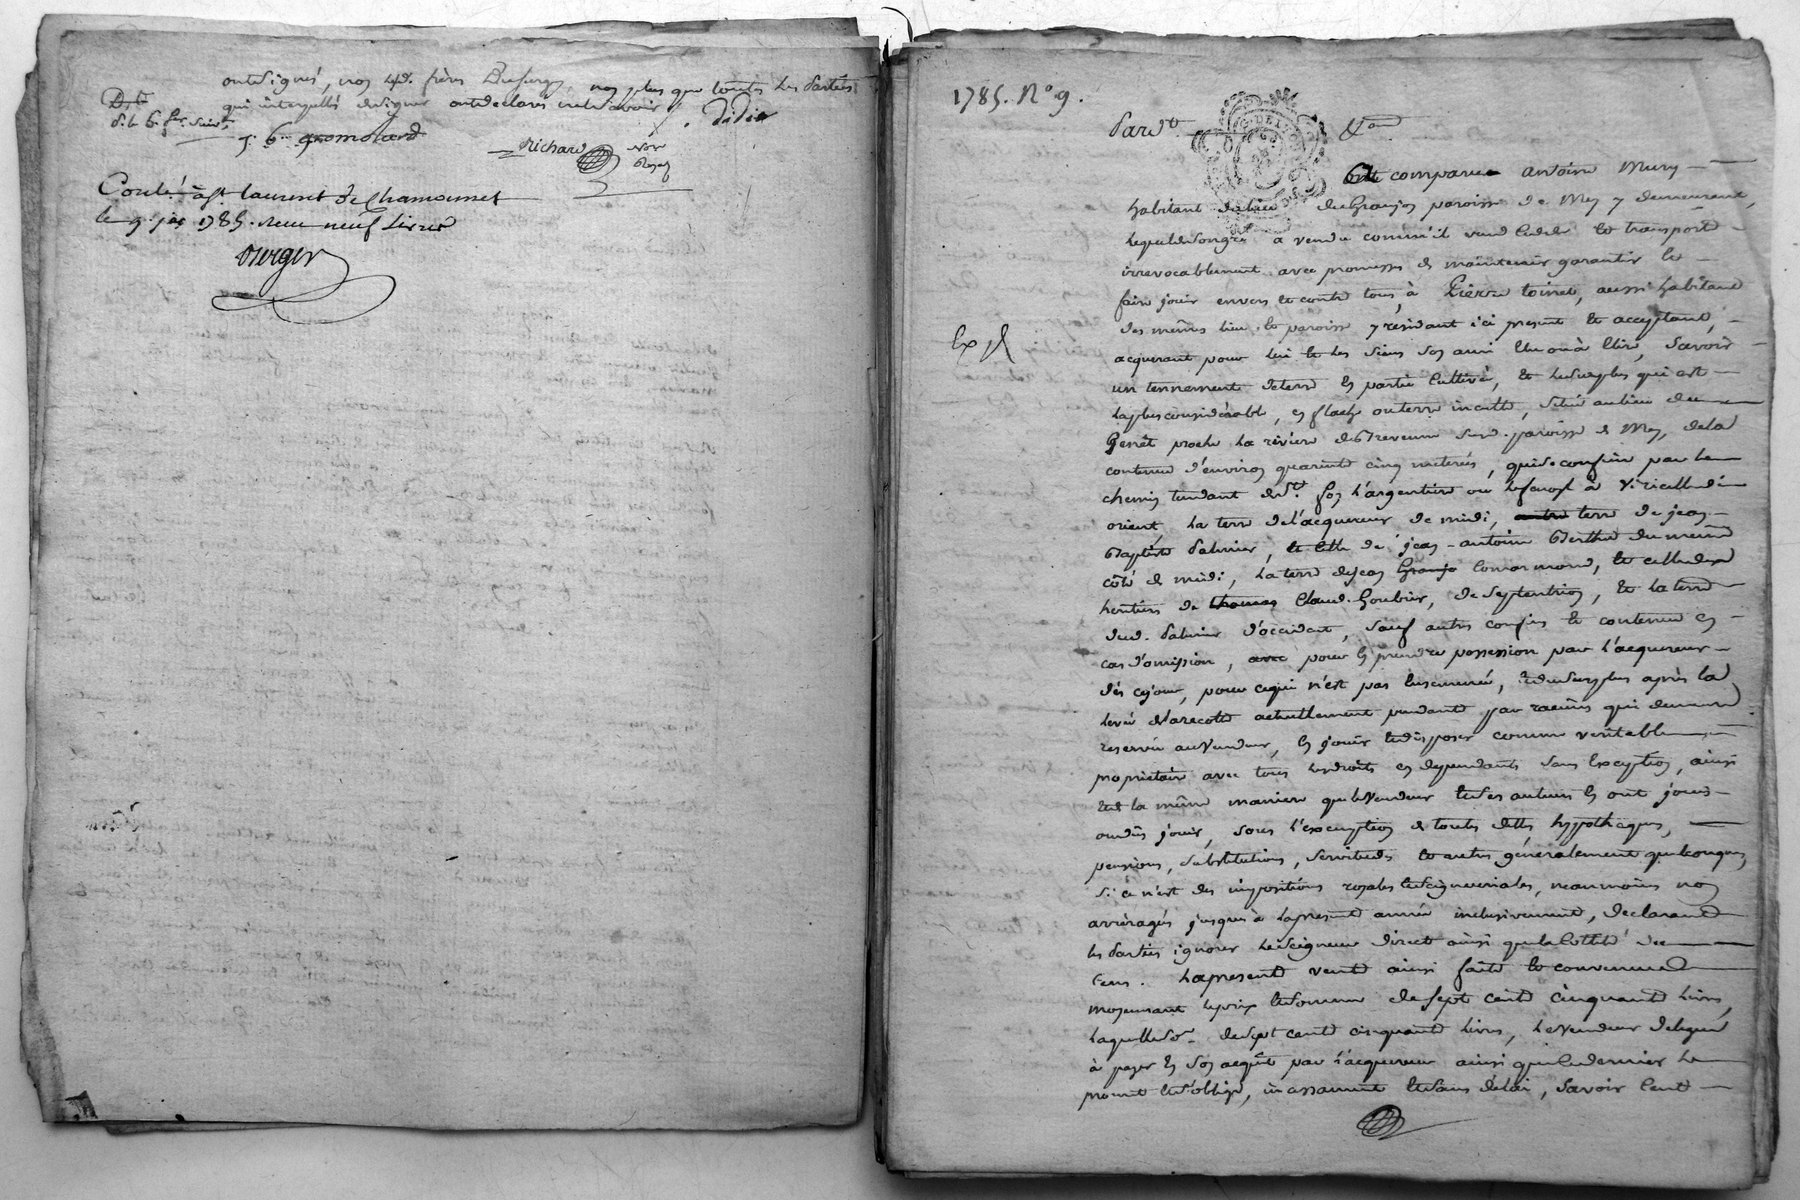 ont signés, non led. frère Dufurg non plus que toutes les parties
qui interpellés de signer ont déclaré ne le savoir
Didier
gromolard
Richard
Nore Royal
Conlé à St. laurent de Chamousset
le 9. 1785. Recu neuf livres
Berger
1785. N° 9.
Pardt. &a
Est comparu antoine Mury
habitant du lieu du Granjon paroisse de Mey y demeurant,
lequel de son gré a vendu comme il vend cede et transporte
irrevocablement avec promesses de maintenir garantir et
faire jouir envers et contre tous, à Pierre toinet, aussi habitant
des mêmes lieu et paroisse y résidant ici present et acceptant,
Exp.d
acquerant pour lui et les siens son ami Elu ou à Elire, savoir
un tennement de terre en partie cultivé, et le surplus qui est
la plus considérable, en flache ou terre inculte, situé au lieu du
Genêt proche la rivière de Brevenne sur d. paroisse de Mey, de la
contenue d'environ quarante cinq meterés, qui se confine par le
chemin tendant de St. foy l'argentière ou le francfl à Viricelle de
orient, la terre de l'acquereur de midi, terre de jean
Baptiste Palmier, et celle de jean-antoine Berthet du même
côté de midi, la terre de jean Granjo Comarmond, et celle des
heritiers de Claude Goubier, de septentrion, et la terre
dud. Palmier d'occident, sauf autres confins et contenue en
cas d'omission, pour en prendre possession par l'acquereur
dès ce jour, pour ce qui n'est pas ensemencé, et du surplus après la
levée de la recolte actuellement pendante par racines qui demeure
reservée au vendeur, en jouir et disposer comme veritable
proprietaire avec tous les droits en dependants sans Exception, ainsi
et de la même maniere que le Vendeur et ses auteurs en ont joui
ou dû jouir, sous l'exemption de toutes dettes, hypotheques,
pensions, substitutions, servitudes et autres généralement quelconques,
si ce n'est des impositions royales et seigneuriales, neanmoins non
arrèragés jusques à la presente année inclusivement, declarant
les parties ignorer le seigneur direct ainsi que la Cotité du
Cens. la presente vente ainsi faite et convenue
moyennant le prix et somme de sept cent cinquante livres,
laquelle so. de sept cent cinquante livres, le Vendeur delegue
à payer en son acquit par l'acquereur ainsi que ce dernier le
promet et s'oblige, incessamment et sans delai, savoir Cent